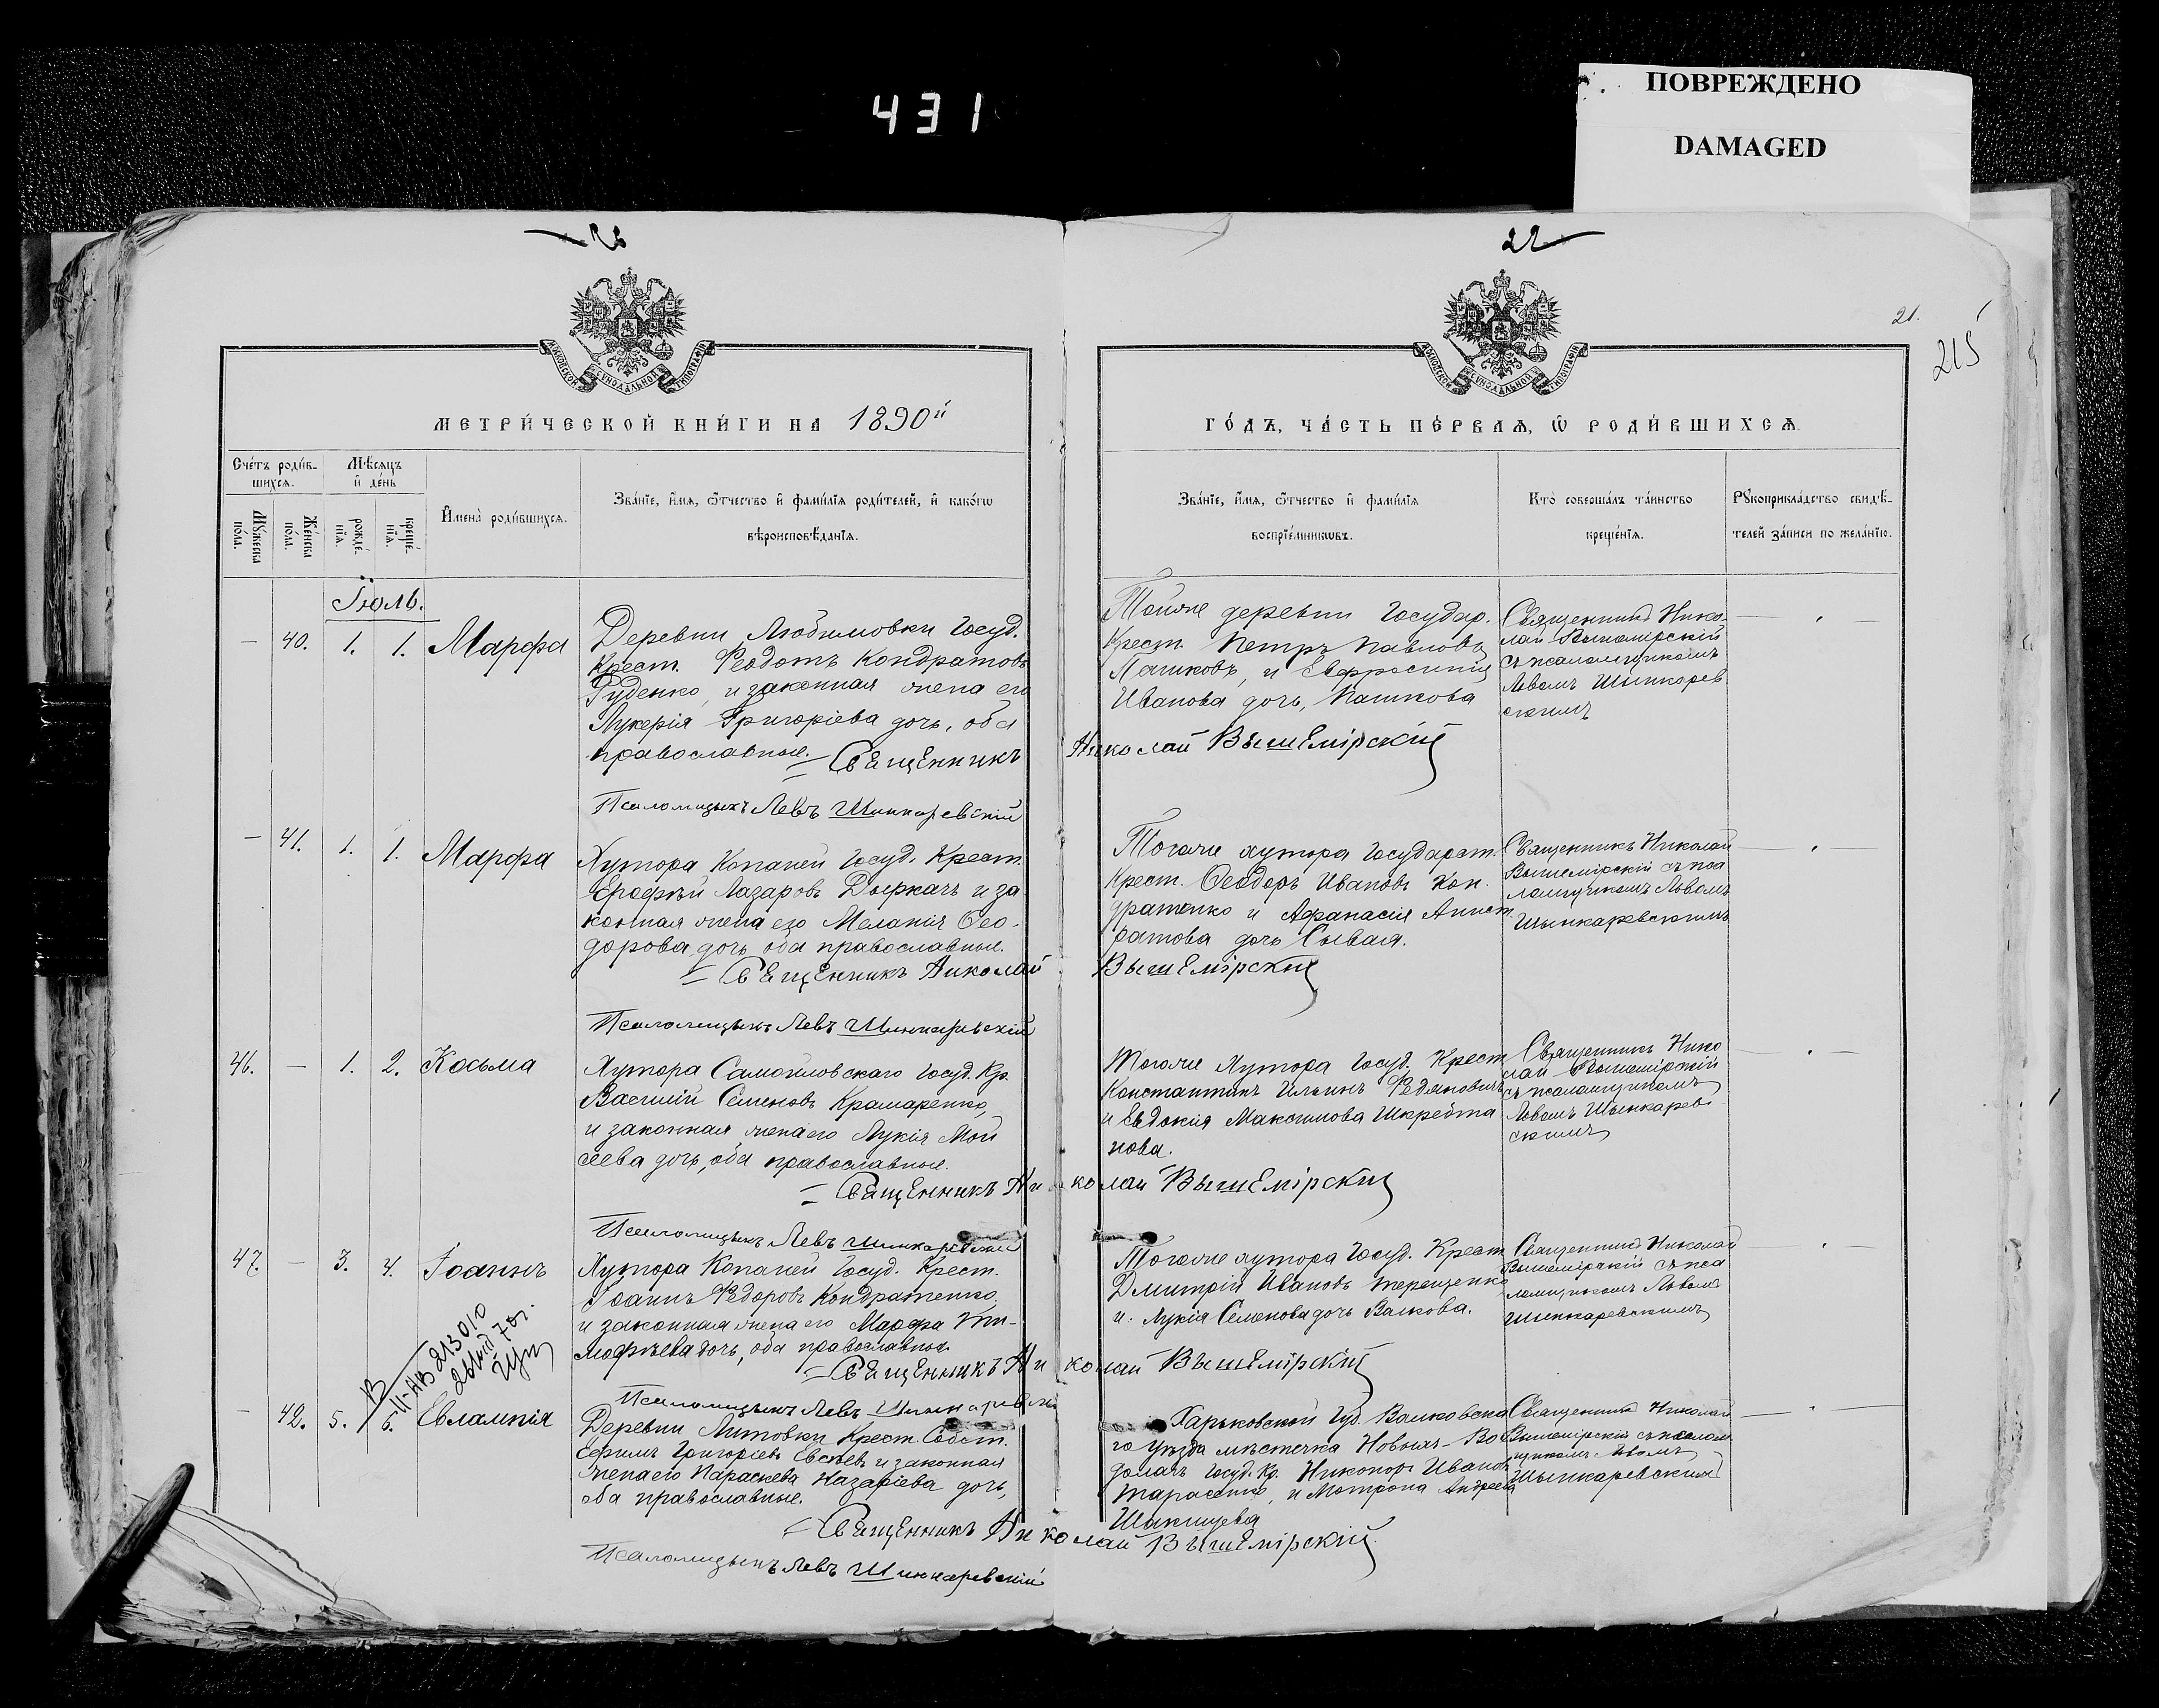 431
ПОВРЕЖДЕНО
DAMAGED
22
21.
215
МОСКОВСКОЙ СУНОДАЛЬНОЙ ТИПОГРАФІИ
МОСКОВСКОЙ СУНОДАЛЬНОЙ ТИПОГРАФІИ
МЕТРИ́ЧЕСКОЙ КНИ́ГИ НА 1890й
ГО́ДЪ, ЧА́СТЬ ПЕ́РВАѦ, Ѡ҆ РОДИ́ВШИХСѦ.
Сче́тъ роди́в-
шихсѧ.
Мѣ́сѧцъ
и҆ де́нь
Мꙋ́жеска
по́ла.
Же́нска
по́ла.
рожде́-
нїѧ.
креще́-
нїѧ.
И҆мена̀ роди́вшихсѧ.
Зва́нїе, и҆́мѧ, ѻ҆́тчество и҆ фами́лїѧ роди́телей, и҆ како́гѡ
вѣроисповѣ́данїѧ.
Зва́нїе, и҆́мѧ, ѻ҆́тчество и҆ фами́лїѧ
воспрїе́мникѡвъ.
Кто̀ соверша́лъ та́инство
креще́нїѧ.
Рꙋкоприкла́дство свидѣ́-
телей за́писи по жела́нїю.
Іюль.
— 40. 1. 1. Марфа
Деревни Любимовки Госуд.
Крест. Феодотъ Кондратовъ
Руденко, и законная жена его
Лукерія Григоріева дочь, оба
православные. — Священникъ Николай Вышемірскій
Псаломщикъ Левъ Шинкаревскій
Тойже деревни Государ.
Крест. Петръ Павловъ
Пашковъ, и Евфросинія
Иванова дочь, Пашкова
Священникъ Нико-
лай Вышемірскій
съ псаломщикомъ
Львомъ Шинкарев
скимъ
— 41. 1. 1. Марфа
Хутора Копаней Госуд. Крест.
Ерофѣй Лазаровъ Дыркачъ и за
конная жена его Меланія Фео-
дорова дочь оба православные.
— Священникъ Николай Вышемірскій
Псаломщикъ Левъ Шинкаревскій
Тогоже хутора Государст.
Крест. Феодоръ Ивановъ Кон-
дратенко и Афанасія
дочь Сывая.
Священникъ Николай
Вышемірскій съ пса
ломщикомъ Львомъ
Шинкаревскимъ
46. — 1. 2. Косьма
Хутора Самойловскаго Госуд. Кр.
Василій Семеновъ Крамаренко,
и законная жена его Лукія Мой
сеева дочь, оба православные.
— Священникъ Николай Вышемірскій
Псаломщикъ Левъ Шинкаревскій
Тогоже Хутора Госуд. Крест
Константинъ Ильинъ
и Евдокія Максимова
нова.
Священникъ Нико
лай Вышемірскій
съ псаломщикомъ
Львомъ Шинкарев
скимъ
47. — 3. 4. Іоаннъ
Хутора Копаней Госуд. Крест.
Іоаннъ Федоровъ Кондратенко,
и законная жена его Марфа Ти-
мофѣева дочь, оба православные
— Священникъ Николай Вышемірскій
Псаломщикъ Левъ Шинкаревскій
Тогоже хутора Госуд. Крест
Дмитрій Ивановъ Терещенко
и Лукія Семенова дочь Валкова.
Священникъ Николай
Вышемірскій съ пса
ломщикомъ Львомъ
Шинкаревскимъ
— 42. 5. 6. Евлампія
Деревни Литовки Крест. Собст.
Ефимъ Григоріевъ и законная
жена его Параскева Назаріева дочь,
оба православные.
— Священникъ Николай Вышемірскій
Псаломщикъ Левъ Шинкаревскій
Харьковской Губ. Валковска
го уѣзда мѣстечка Новыхъ-Во
долагъ Госуд. Кр. Никоноръ Ивановъ
Тарасенко, и Мотрона Андреева
Священникъ Николай
Вышемірскій съ псалом
щикомъ Львомъ
Шинкаревскимъ